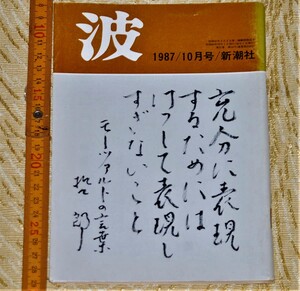 波
1987/10月号/新潮社
充分に表現
するためには
けっして表現し
すぎないこと
モーツァルトの言葉
15
20
25